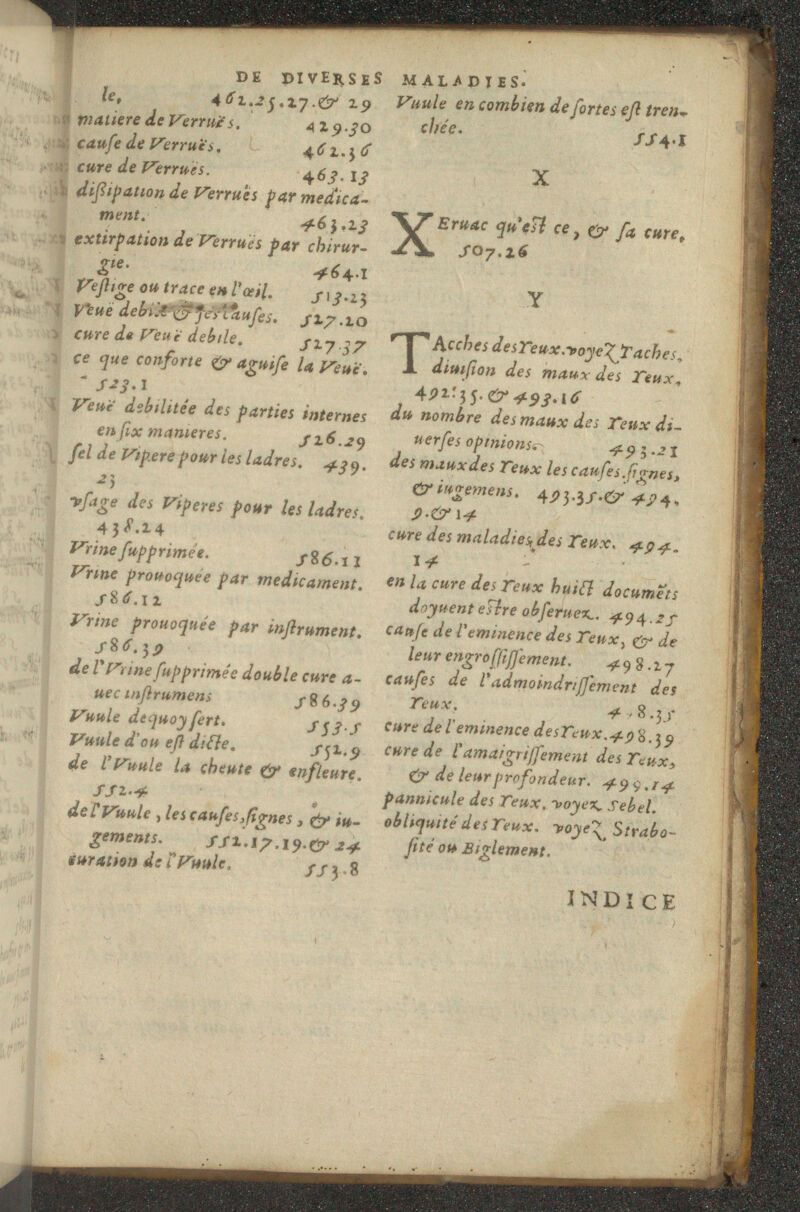 DE DIVERSES MALADIES.
le, 462.25.27.& 29
matiere de Verrues. 429.30
cause de Verruës. 462.36
cure de Verruës. 463.13
dißipation de Verruës par medica-
ment. 463.23
extirpation de Verruës par chirur-
gie. 464.1
Vestige ou trace en l'œil. 513.23
Veuë debile & ses causes. 527.20
cure de Veuë debile. 527.37
ce que conforte & aguise la Veuë.
523.1
Veuë debilitée des parties internes
en six manieres. 526.29
sel de Vipere pour les ladres. 439.
23
vsage des Viperes pour les ladres.
438.24
Vrine supprimée. 586.11
Vrine prouoquée par medicament.
586.12
Vrine prouoquée par instrument.
586.39
de l'Vrine supprimée double cure a-
uec instrumens 586.39
Vuule dequoy sert. 553.5
Vuule d'ou est dicte. 552.9
de l'Vuule la cheute & enfleure.
552.4
de l'Vuule, les causes, signes, & iu-
gements. 552.17.19.& 24
curation de l'Vuule. 553.8
Vuule en combien de sortes est tren-
chée. 554.1
X
XEruac qu'est ce, & sa cure,
507.26
Y
TAcches des Yeux. voyez Taches,
diuision des maux des Yeux,
492.35.& 493.16
du nombre des maux des Yeux di-
uerses opinions. 493.21
des maux des Yeux les causes, signes,
& iugemens. 493.35.& 494.
9.& 14
cure des maladies des Yeux. 494.
14
en la cure des Yeux huict documẽts
doyuent estre obseruez. 494.25
cause de l'eminence des Yeux, & de
leur engrossissement. 498.27
causes de l'admoindrissement des
Yeux. 498.35
cure de l'eminence des Yeux. 498.39
cure de l'amaigrissement des Yeux,
& de leur profondeur. 499.14
pannicule des Yeux, voyez Sebel.
obliquité des Yeux. voyez Strabo-
sité ou Biglement.
INDICE